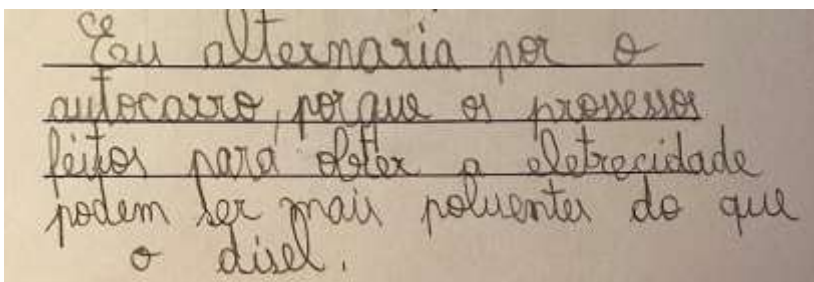 Eu alternaria por o
autocarro, porque os prossessos
feitos para obter a eletrecidade
podem ser mais poluentes do que
o disel.